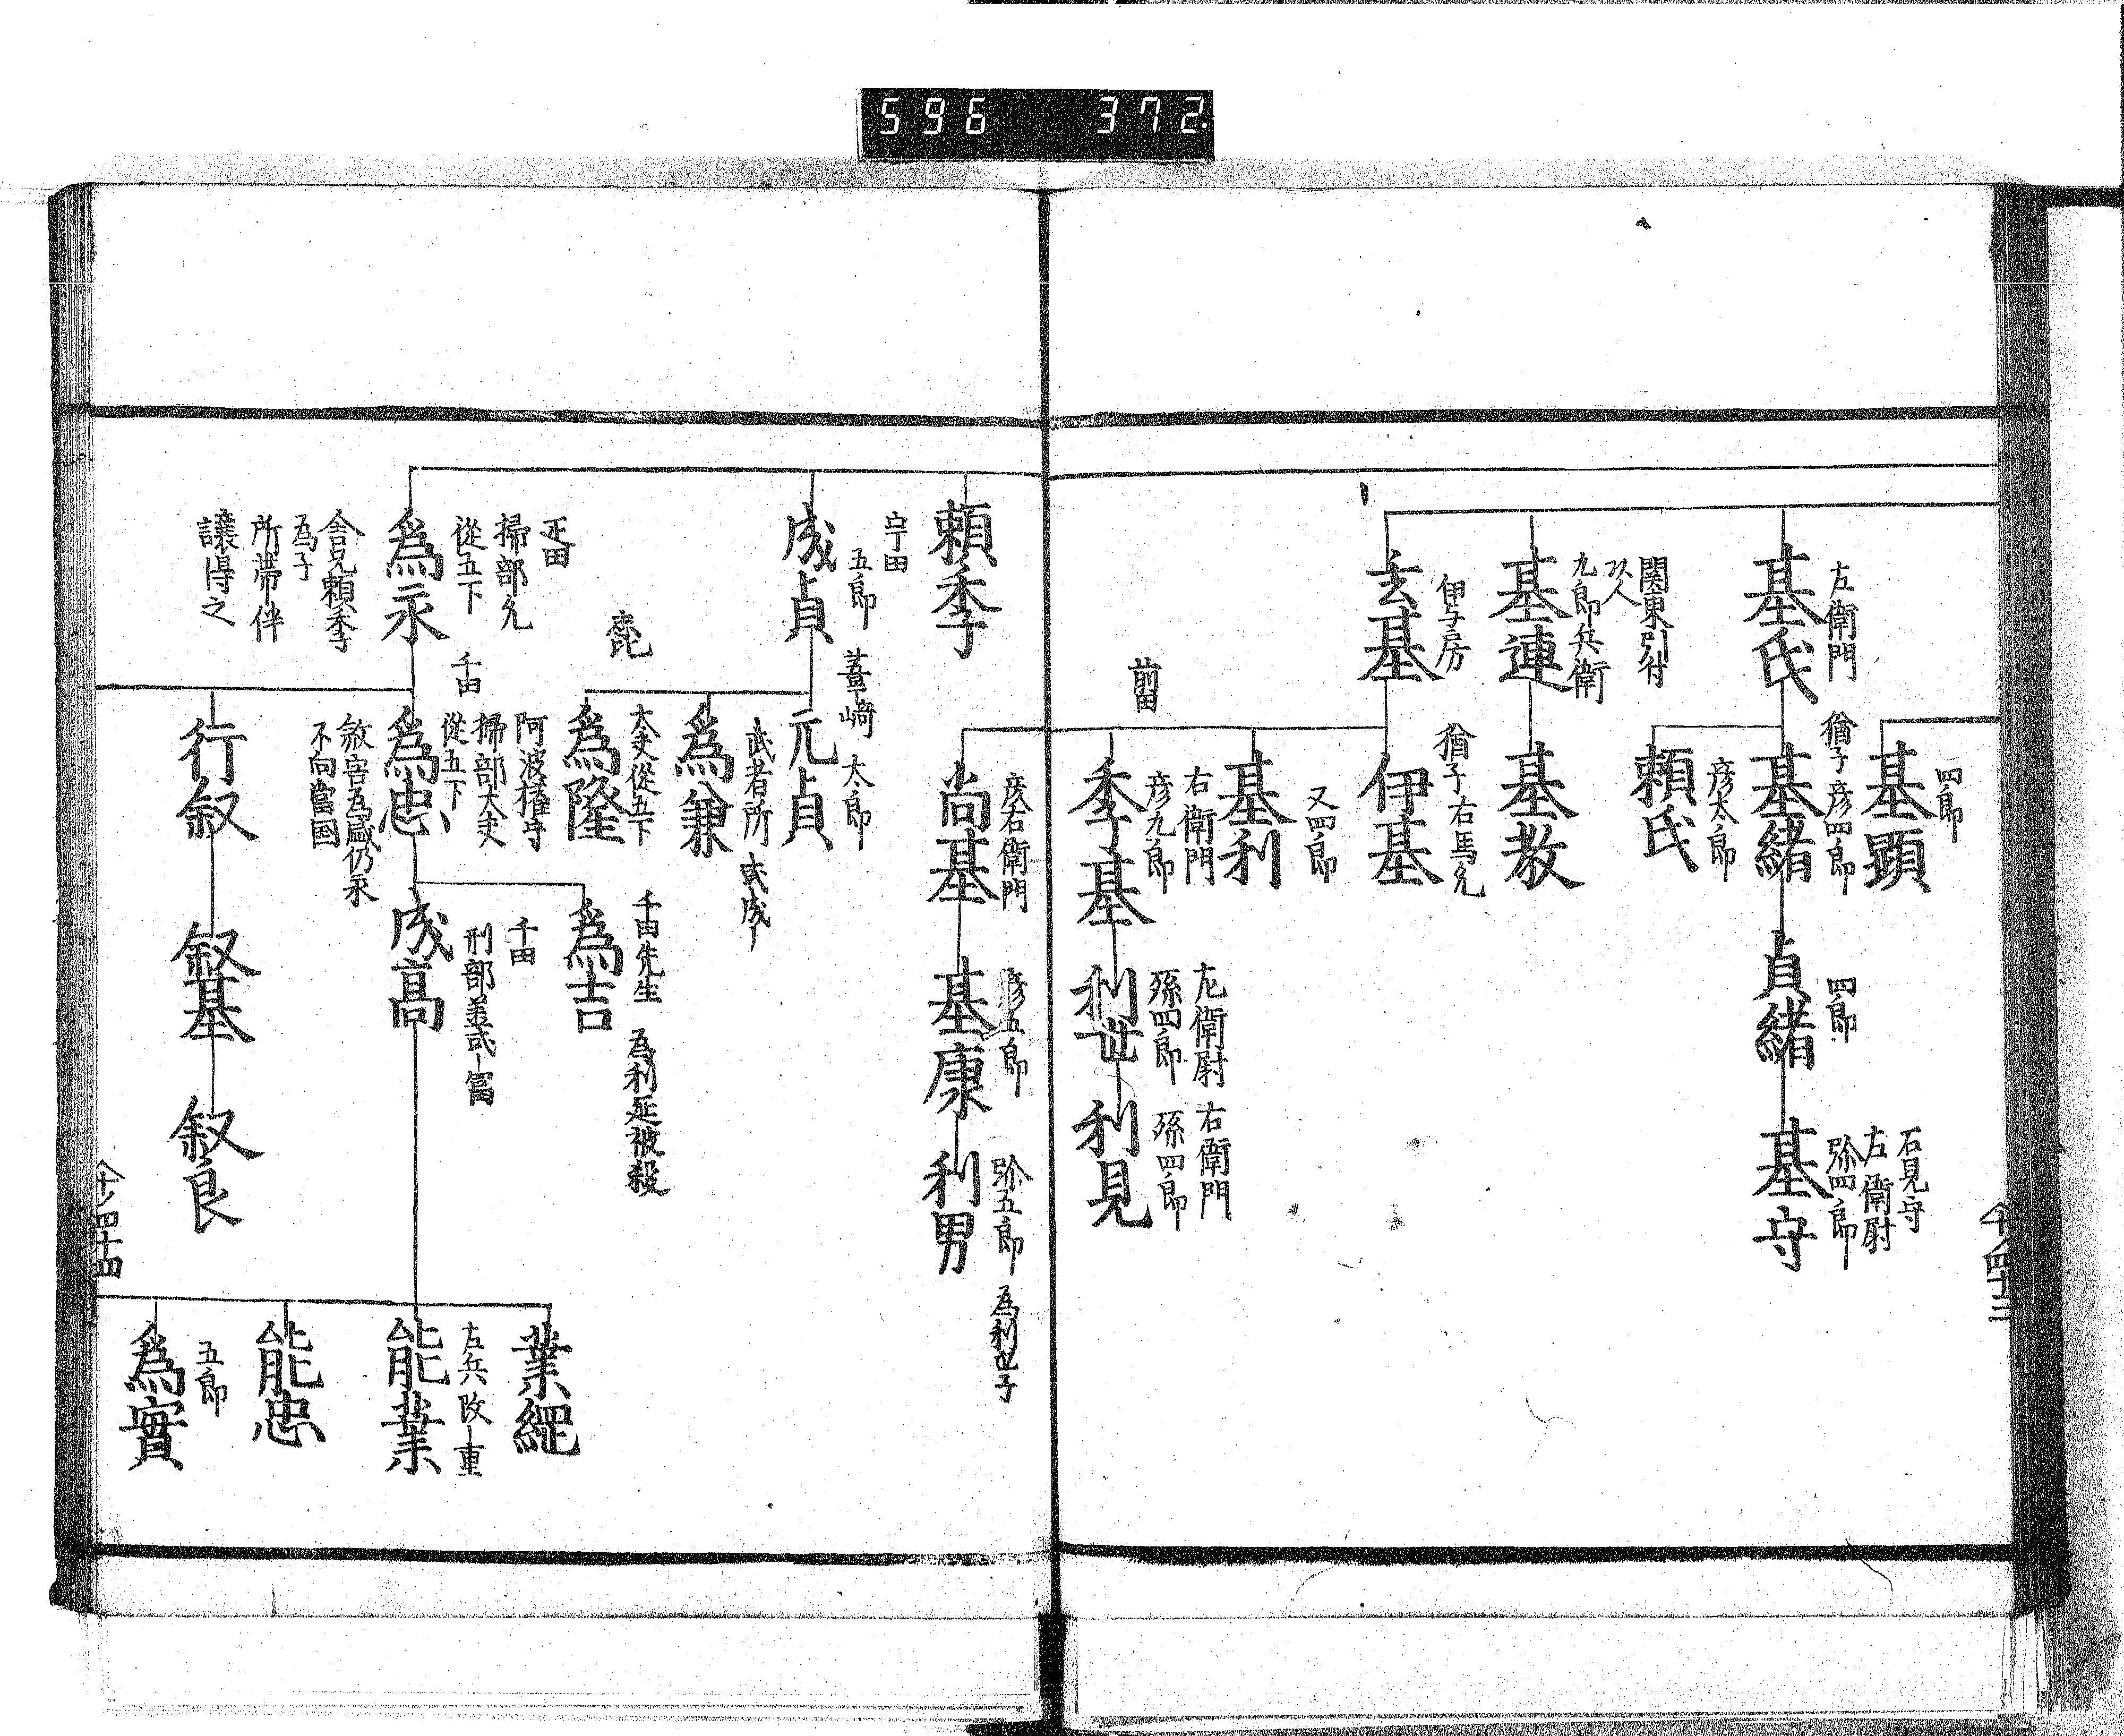 596 372
四郎
基顕
左衛門
基氏
猶子彦四郎
基緒
四郎
貞緒
石見守
左衛尉
弥四郎
基守
彦太郎
頼氏
関東引付
以人
九郎兵衛
基連
基教
伊与房
玄基
猶子右馬允
伊基
又四郎
基利
前田
右衛門
彦九郎
季基
左衛尉
孫四郎
利世
右衛門
孫四郎
利見
彦右衛門
尚基
彦五郎
基康
弥五郎
為利世子
利男
頼季
宇田
五郎
成貞
蓋崎 太郎
元貞
武者所 或成
為兼
大夫從五下
為隆
疋田
掃部允
從五下
為永
舎兄頼季
為子
所帯伴
譲得之
千田
阿波権守
掃部大夫
從五下
為忠
敘害為盛仍永
不向當国
千田先生 為利延被殺
為吉
千田
刑部差 或冨
成高
行叙
叙基
叙良
業經
左兵 改重
能業
能忠
五郎
為實
四十四